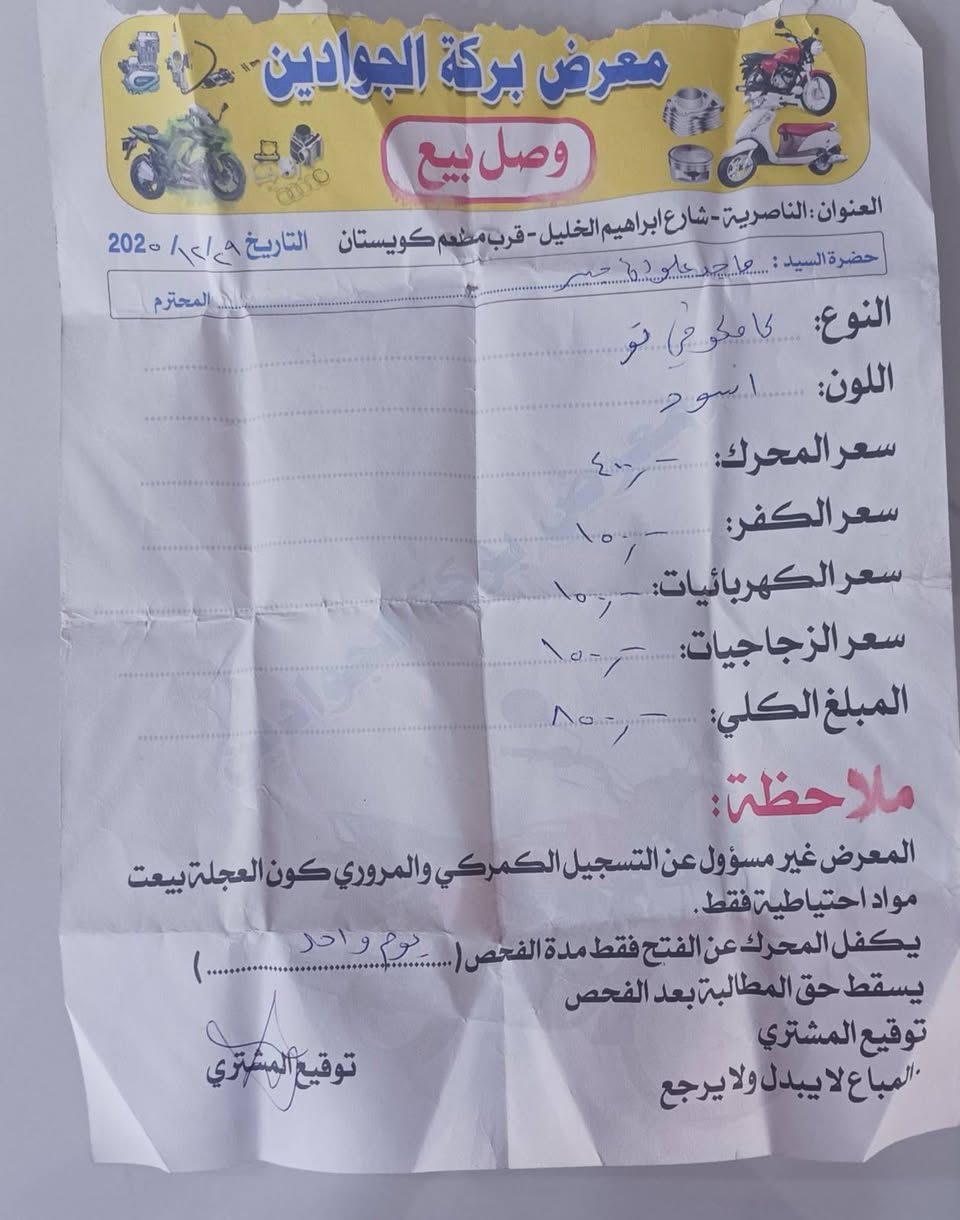 معرض بركة الجوادين
وصل بيع
العنوان : الناصرية - شارع ابراهيم الخليل - قرب مطعم كويستان
التاريخ ٢٩ / ١٢ / 2020
حضرة السيد : ماجد علي المحترم
النوع:
اللون: اسود
سعر المحرك: ٤٠٠,-
سعر الكفر: ١٥٠,-
سعر الكهربائيات: ١٥٠,-
سعر الزجاجيات: ١٥٠,-
المبلغ الكلي: ٨٥٠,-
ملاحظة:
المعرض غير مسؤول عن التسجيل الكمركي والمروري كون العجلة بيعت
مواد احتياطية فقط.
يكفل المحرك عن الفتح فقط مدة الفحص ( يوم واحد )
يسقط حق المطالبة بعد الفحص
توقيع المشتري
توقيع المشتري
المباع لا يبدل ولا يرجع